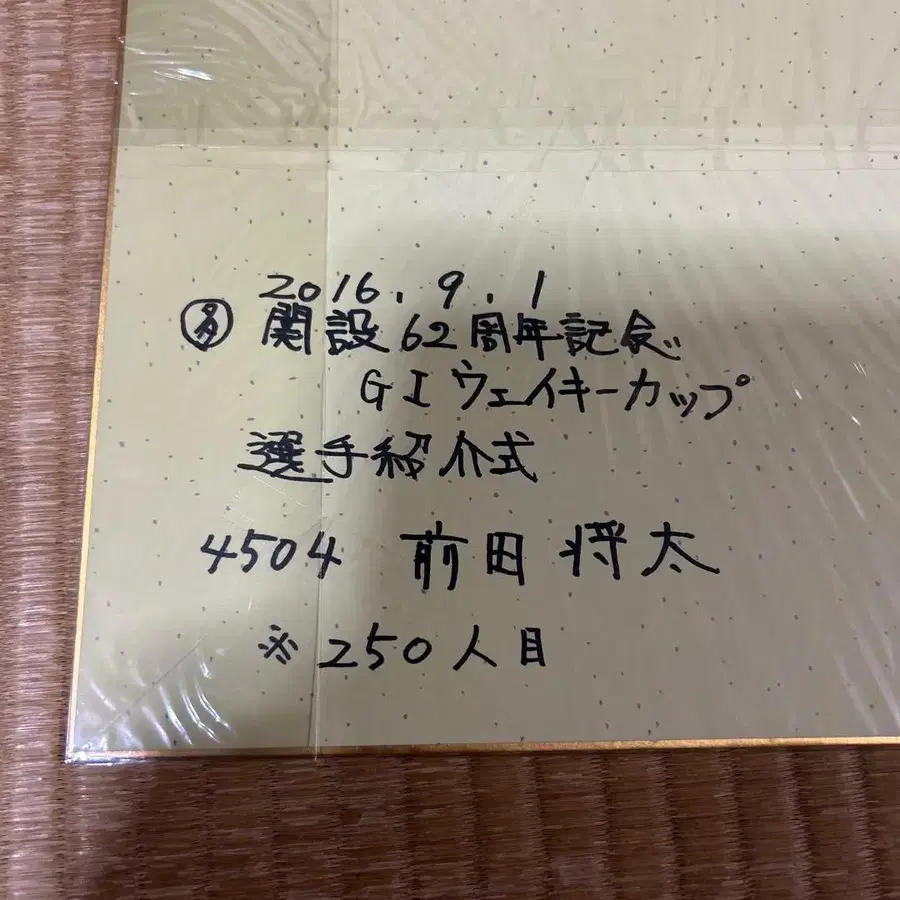 2016.9.1
㊕開設62周年記念
GIウェイキーカップ
選手紹介式
4504 前田将太
※250人目